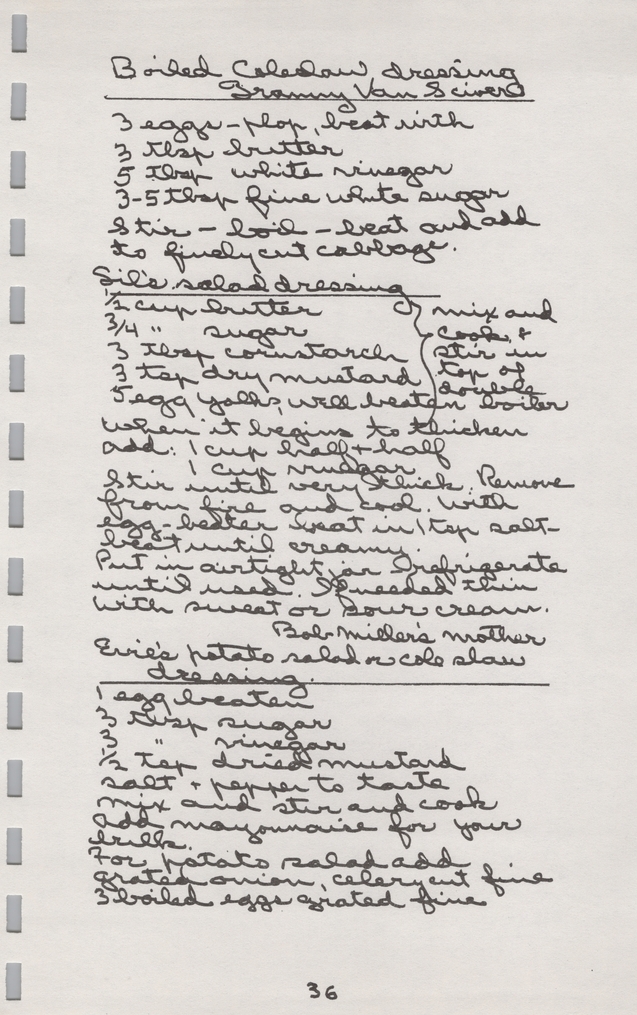 Boiled Coleslaw dressing
Granny Van Sciver
3 eggs - plop, beat with
3 tbsp butter
5 tbsp white vinegar
3-5 tbsp fine white sugar
Stir - boil - beat and add
to finely cut cabbage.
Sil's salad dressing
1/2 cup butter
3/4 " sugar
3 tbsp cornstarch
3 tsp dry mustard
5 egg yolks, well beaten
mix and
cook &
stir in
top of
double
boiler
when it begins to thicken
add: 1 cup half + half
1 cup vinegar
Stir until very thick. Remove
from fire and cool. With
egg-beater beat in 1 tsp salt-
beat until creamy.
Put in airtight jar & refrigerate
until used. If needed thin
with sweet or sour cream.
Bob Miller's mother
Evie's potato salad or cole slaw
dressing.
1 egg beaten
3 tbsp sugar
3 " vinegar
1/2 tsp dried mustard
salt + pepper to taste
mix and stir and cook
add mayonnaise for your
For potato salad add
grated onion, celery cut fine
3 boiled eggs grated fine
36